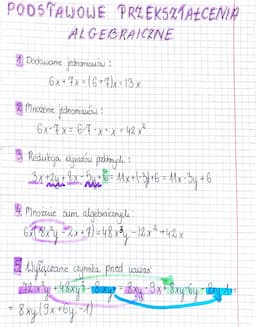 PODSTAWOWE PRZEKSZTAŁCENIA
ALGEBRAICZNE
1. Dodawanie jednomianów:
6x+7x=(6+7)x=13x
2. Mnożenie jednomianów:
6x·7x=6·7·x·x=42x²
3. Redukcja wyrazów podobnych:
3x+2y+8x-5y+6=11x+(-3y)+6=11x-3y+6
4. Mnożenie sum algebraicznych:
6x(8x²y-2x+7)=48x³y-12x²+42x
5. Wyłączanie czynnika przed nawias:
=8xy(9x+6y-1)